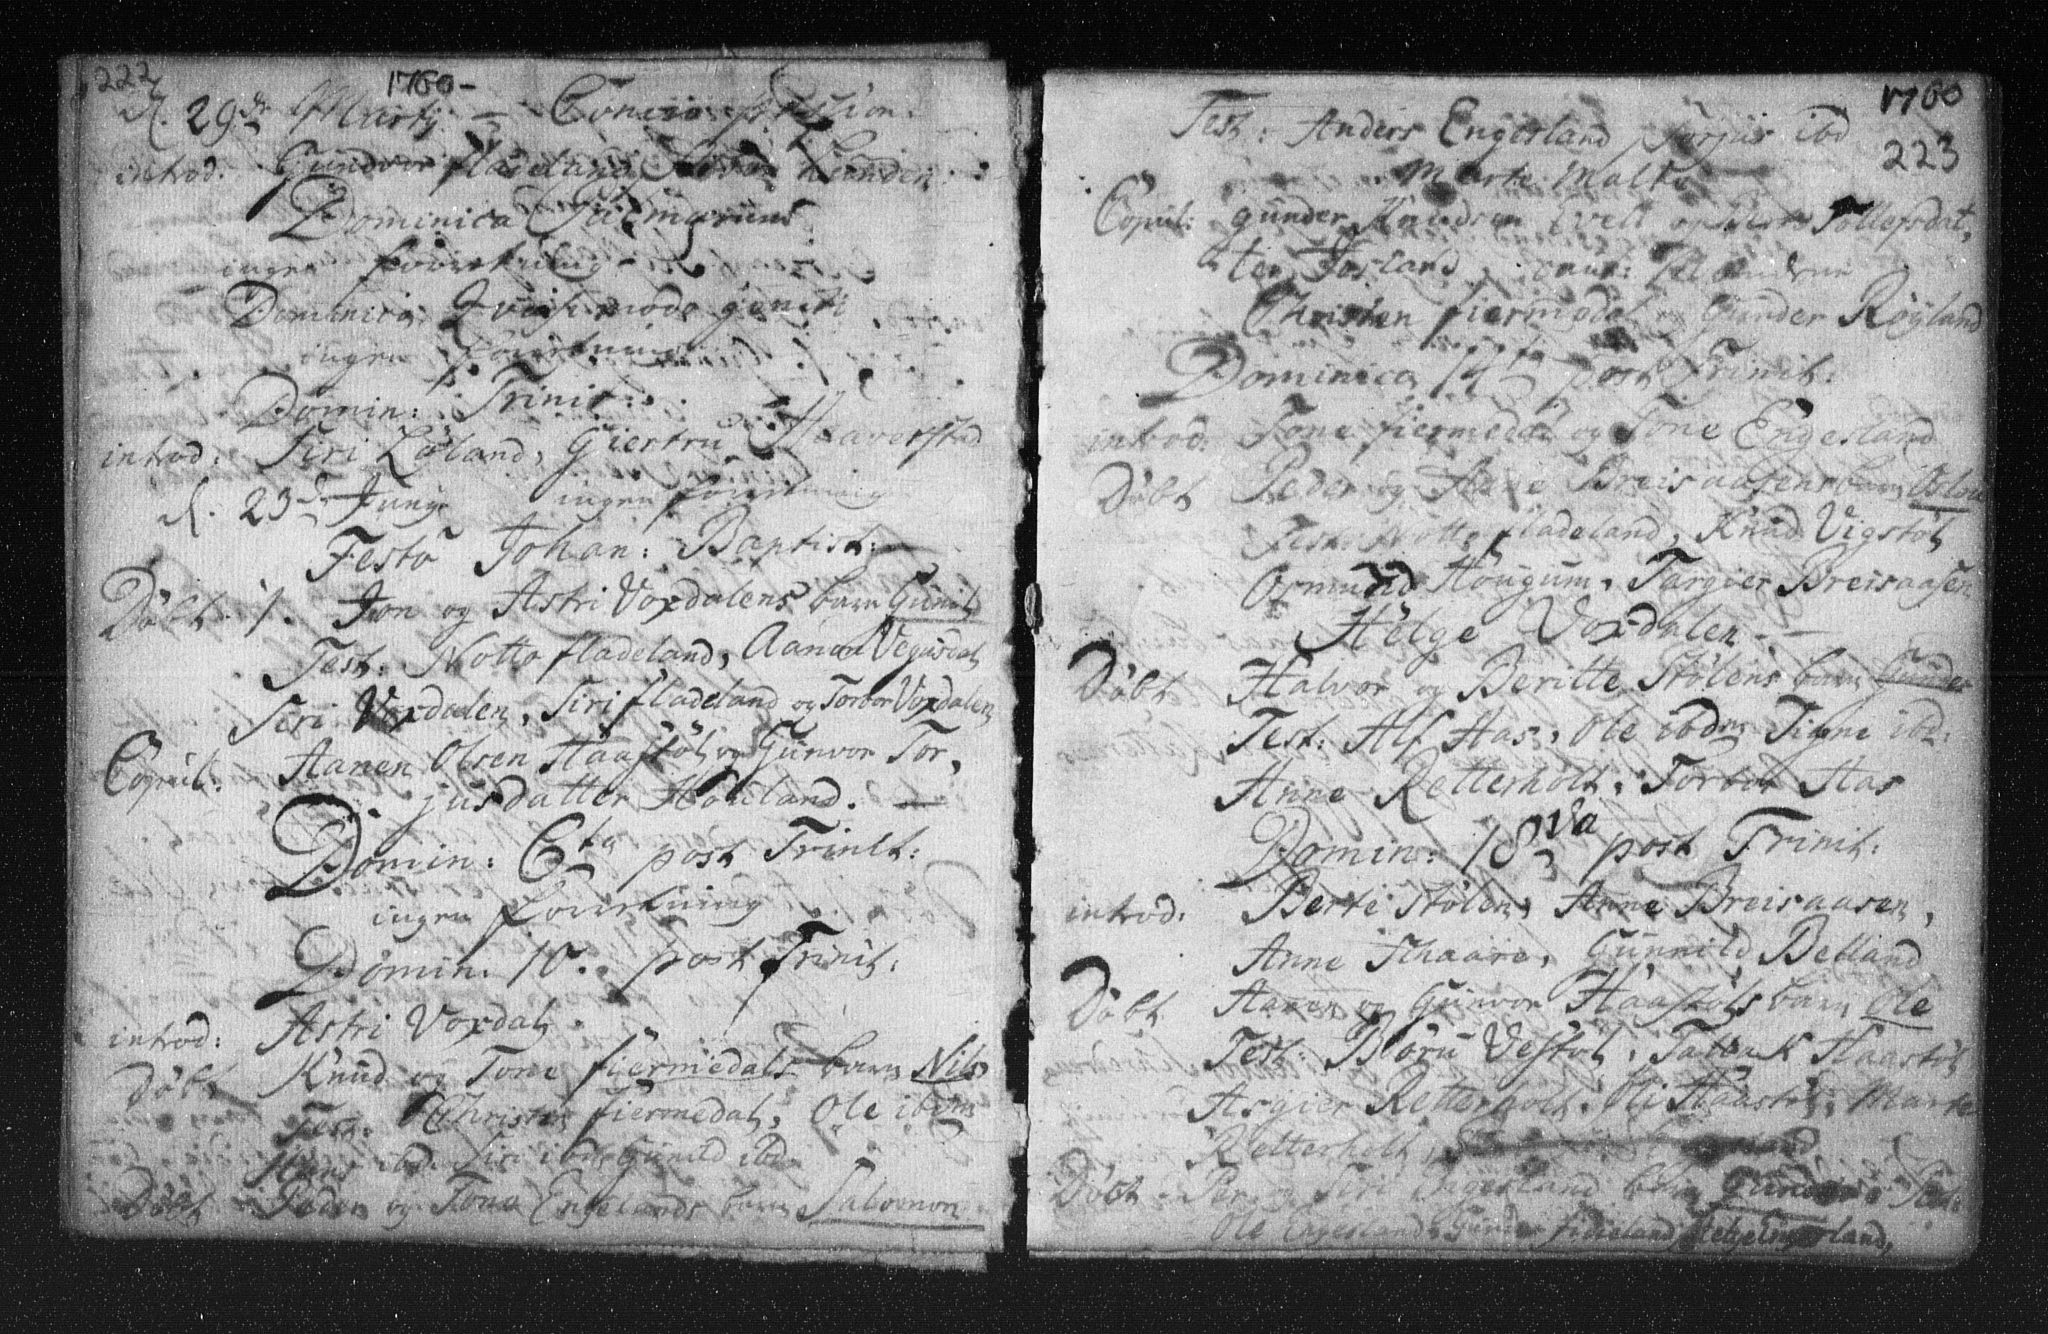 222
1760-
d. 29de Martij - Concio
introd: Gundvor fladeland,
Dominica Palmarum
ingen forretning
Dominica Quasimodo geniti
ingen forretning
Domin: Trinit:
introd: Siri Løland, Giertru Haverstad
d. 23d Junij ingen forretning
Festo Johan: Baptist:
Døbt 1. Jon og Astri Voxdalens barn Gunil
Test: Notto fladeland, Aanen Vegusdal
Siri Voxdalen, Siri fladeland og Torbor Voxdalen
Copul: Aanen Olsen Haastøl og Gunvor Tor,
jusdatter Hofeland.
Domin: 6ta post Trinit:
ingen forretning
Domin: 10. post Trinit:
introd: Astri Voxdal,
Døbt Knud og Tone fiermedals barn Nils
Test: Christen fiermedal, Ole ibdm
Hans ibd. Siri ibd. Gunild ibd.
Døbt Peder og Tone Engelands barn Salomon
1760
223
Test: Anders Engesland, Torjus ibd
Marte
Copul: Gunder Knudsen og Tollefsdat,
ter Fosland, caut:
Christen fiermedal og Gunder Røyland
Dominica 14ta post Trinit:
introd: Tone fiermedal og Tone Engesland
Døbt Peder og Anne Breisaasens barn
Test: Notto fladeland, Knud Vigstøl
Osmund Hougum, Targier Breisaasen
Helge Voxdalen
Døbt Halvor og Beritte Stølens barn Gunder
Test: Alf Aas, Ole ibdm Signe ibd:
Anne Retterholt, Torbor Aas
Domin: 18va post Trinit:
introd: Berte Stølen, Anne Breisaasen,
Anne Skaare, Gunnild Belland
Døbt Aanen og Gunvor Haastøls barn Ole
Test: Boru Vestøl, Tarak Haastøl
Asgier Retterholt, Oli Haastøl, Marte
Retterholt,
Døbt Per og Siri Engesland barn Gunder. Test:
Ole Engesland, Gunder fidieland, Helje Engesland,